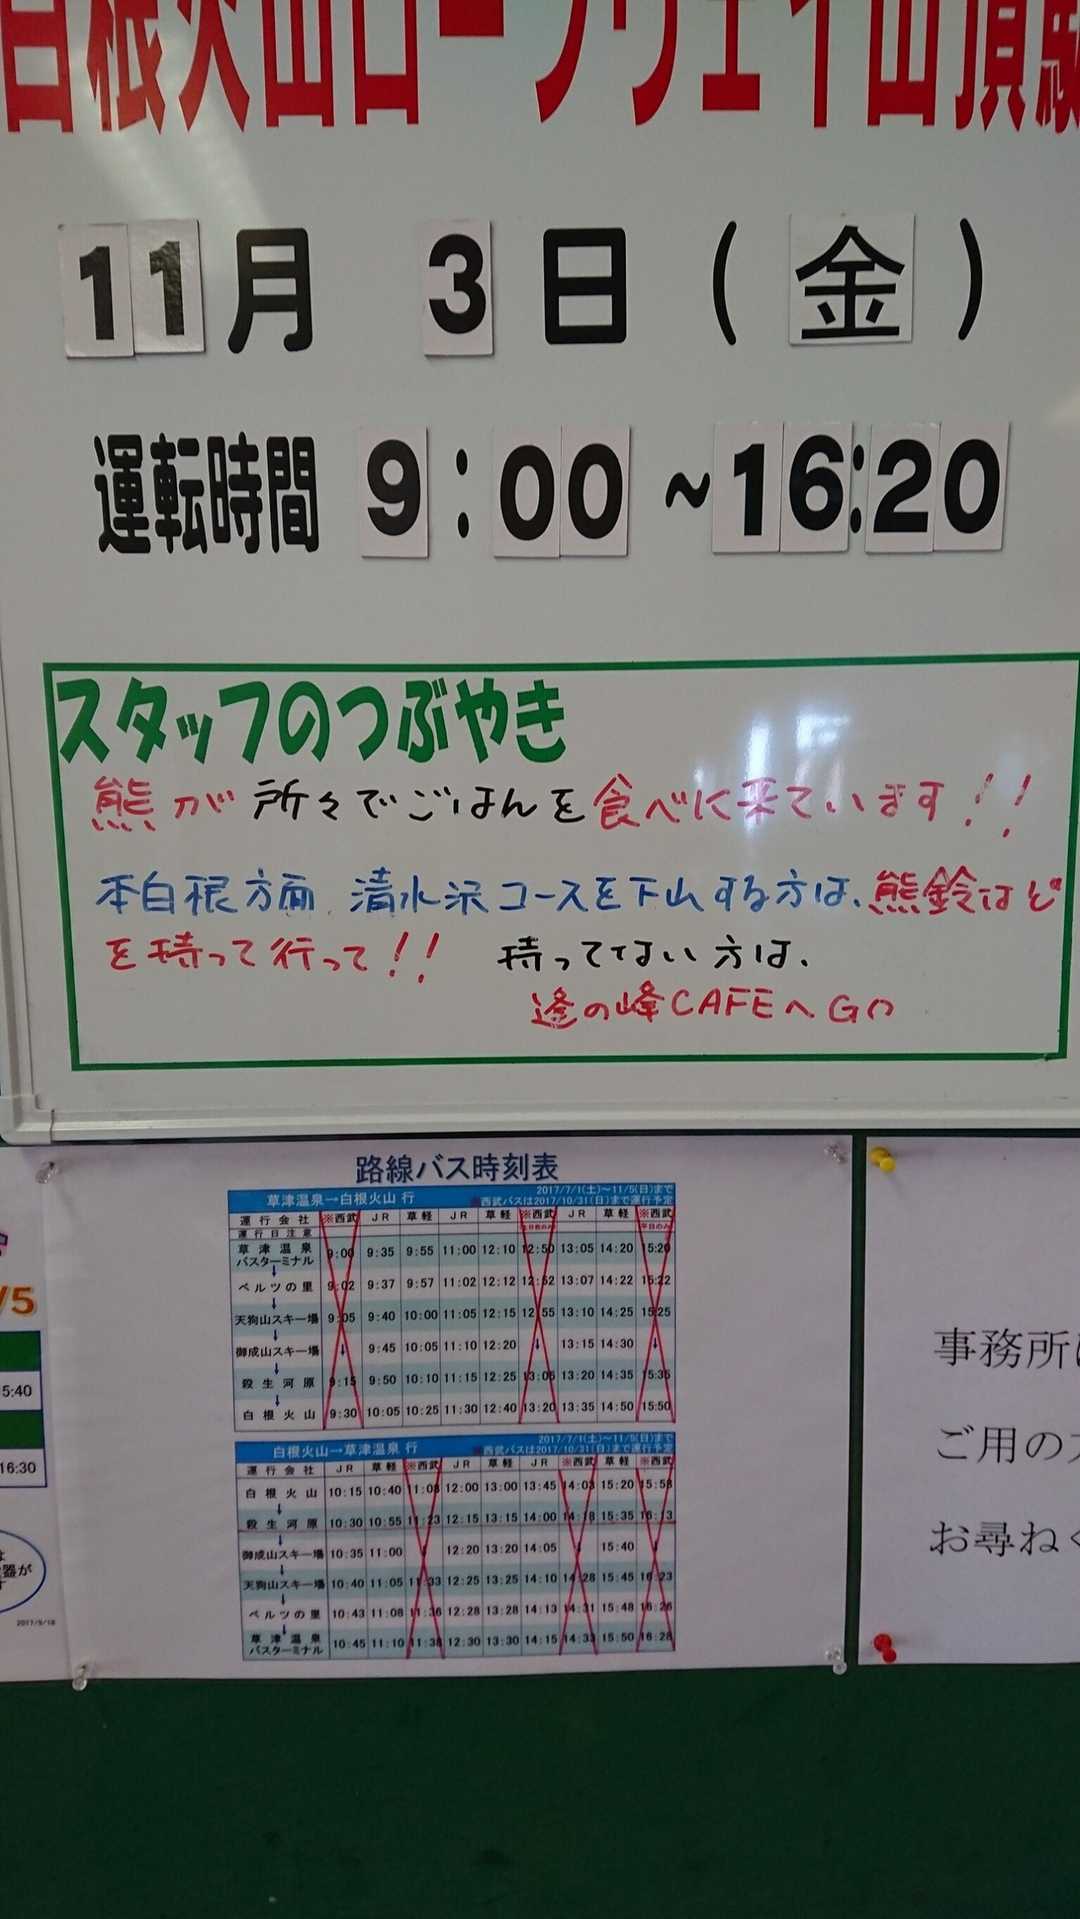 白根火山ロープウェイ山頂駅
11月 3日(金)
運転時間 9:00~16:20
スタッフのつぶやき
熊が所々でごはんを食べに来ています!!
本白根方面 清水沢コースを下山する方は、熊鈴など
を持って行って!! 持ってない方は、
逢の峰CAFEへGO
路線バス時刻表
草津温泉→白根火山 行 2017/7/1(土)~11/5(日)まで
※西武バスは2017/10/31(日)まで運行予定
運行会社 ※西武 JR 草軽 JR 草軽 ※西武 JR 草軽 ※西武
運行日注意 土日祝のみ 平日のみ
草津温泉
バスターミナル 9:00 9:35 9:55 11:00 12:10 12:50 13:05 14:20 15:20
↓
ベルツの里 9:02 9:37 9:57 11:02 12:12 12:52 13:07 14:22 15:22
↓
天狗山スキー場 9:05 9:40 10:00 11:05 12:15 12:55 13:10 14:25 15:25
↓
御成山スキー場 ↓ 9:45 10:05 11:10 12:20 ↓ 13:15 14:30 ↓
↓
殺生河原 9:15 9:50 10:10 11:15 12:25 13:05 13:20 14:35 15:35
↓
白根火山 9:30 10:05 10:25 11:30 12:40 13:20 13:35 14:50 15:50
白根火山→草津温泉 行 2017/7/1(土)~11/5(日)まで
※西武バスは2017/10/31(日)まで運行予定
運行会社 JR 草軽 ※西武 JR 草軽 JR ※西武 草軽 ※西武
白根火山 10:15 10:40 11:08 12:00 13:00 13:45 14:03 15:20 15:58
↓
殺生河原 10:30 10:55 11:23 12:15 13:15 14:00 14:18 15:35 16:13
↓
御成山スキー場 10:35 11:00 ↓ 12:20 13:20 14:05 ↓ 15:40 ↓
↓
天狗山スキー場 10:40 11:05 11:33 12:25 13:25 14:10 14:28 15:45 16:23
↓
ベルツの里 10:43 11:08 11:36 12:28 13:28 14:13 14:31 15:48 16:26
↓
草津温泉
バスターミナル 10:45 11:10 11:38 12:30 13:30 14:15 14:33 15:50 16:28
/5
5:40
16:30
器が
2017/9/18
事務所に
ご用の方
お尋ねく